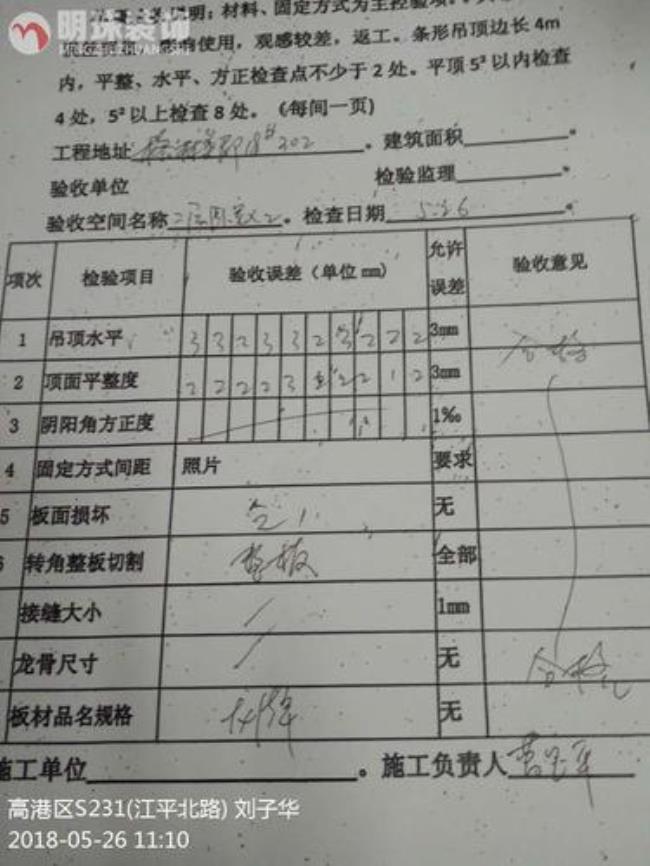 明珠装饰
说明：材料、固定方式为主控验项。
使用，观感较差，返工。条形吊顶边长4m
内，平整、水平、方正检查点不少于2处。平顶5²以内检查
4处，5²以上检查8处。（每间一页）
工程地址 18# 202 。建筑面积 。
验收单位 检验监理 。
验收空间名称 二层 2 。检查日期 5.26 。
项次 检验项目 验收误差（单位mm） 允许误差 验收意见
1 吊顶水平 3 3 2 3 3 2 3 2 2 2 3mm 合格
2 顶面平整度 2 2 2 2 3 2 2 1 2 3mm
3 阴阳角方正度 1‰
4 固定方式间距 照片 要求
5 板面损坏 无
6 转角整板切割 整板 全部
接缝大小 / 1mm
龙骨尺寸 / 无 合格
板材品名规格 无
施工单位 。施工负责人
高港区S231(江平北路) 刘子华
2018-05-26 11:10